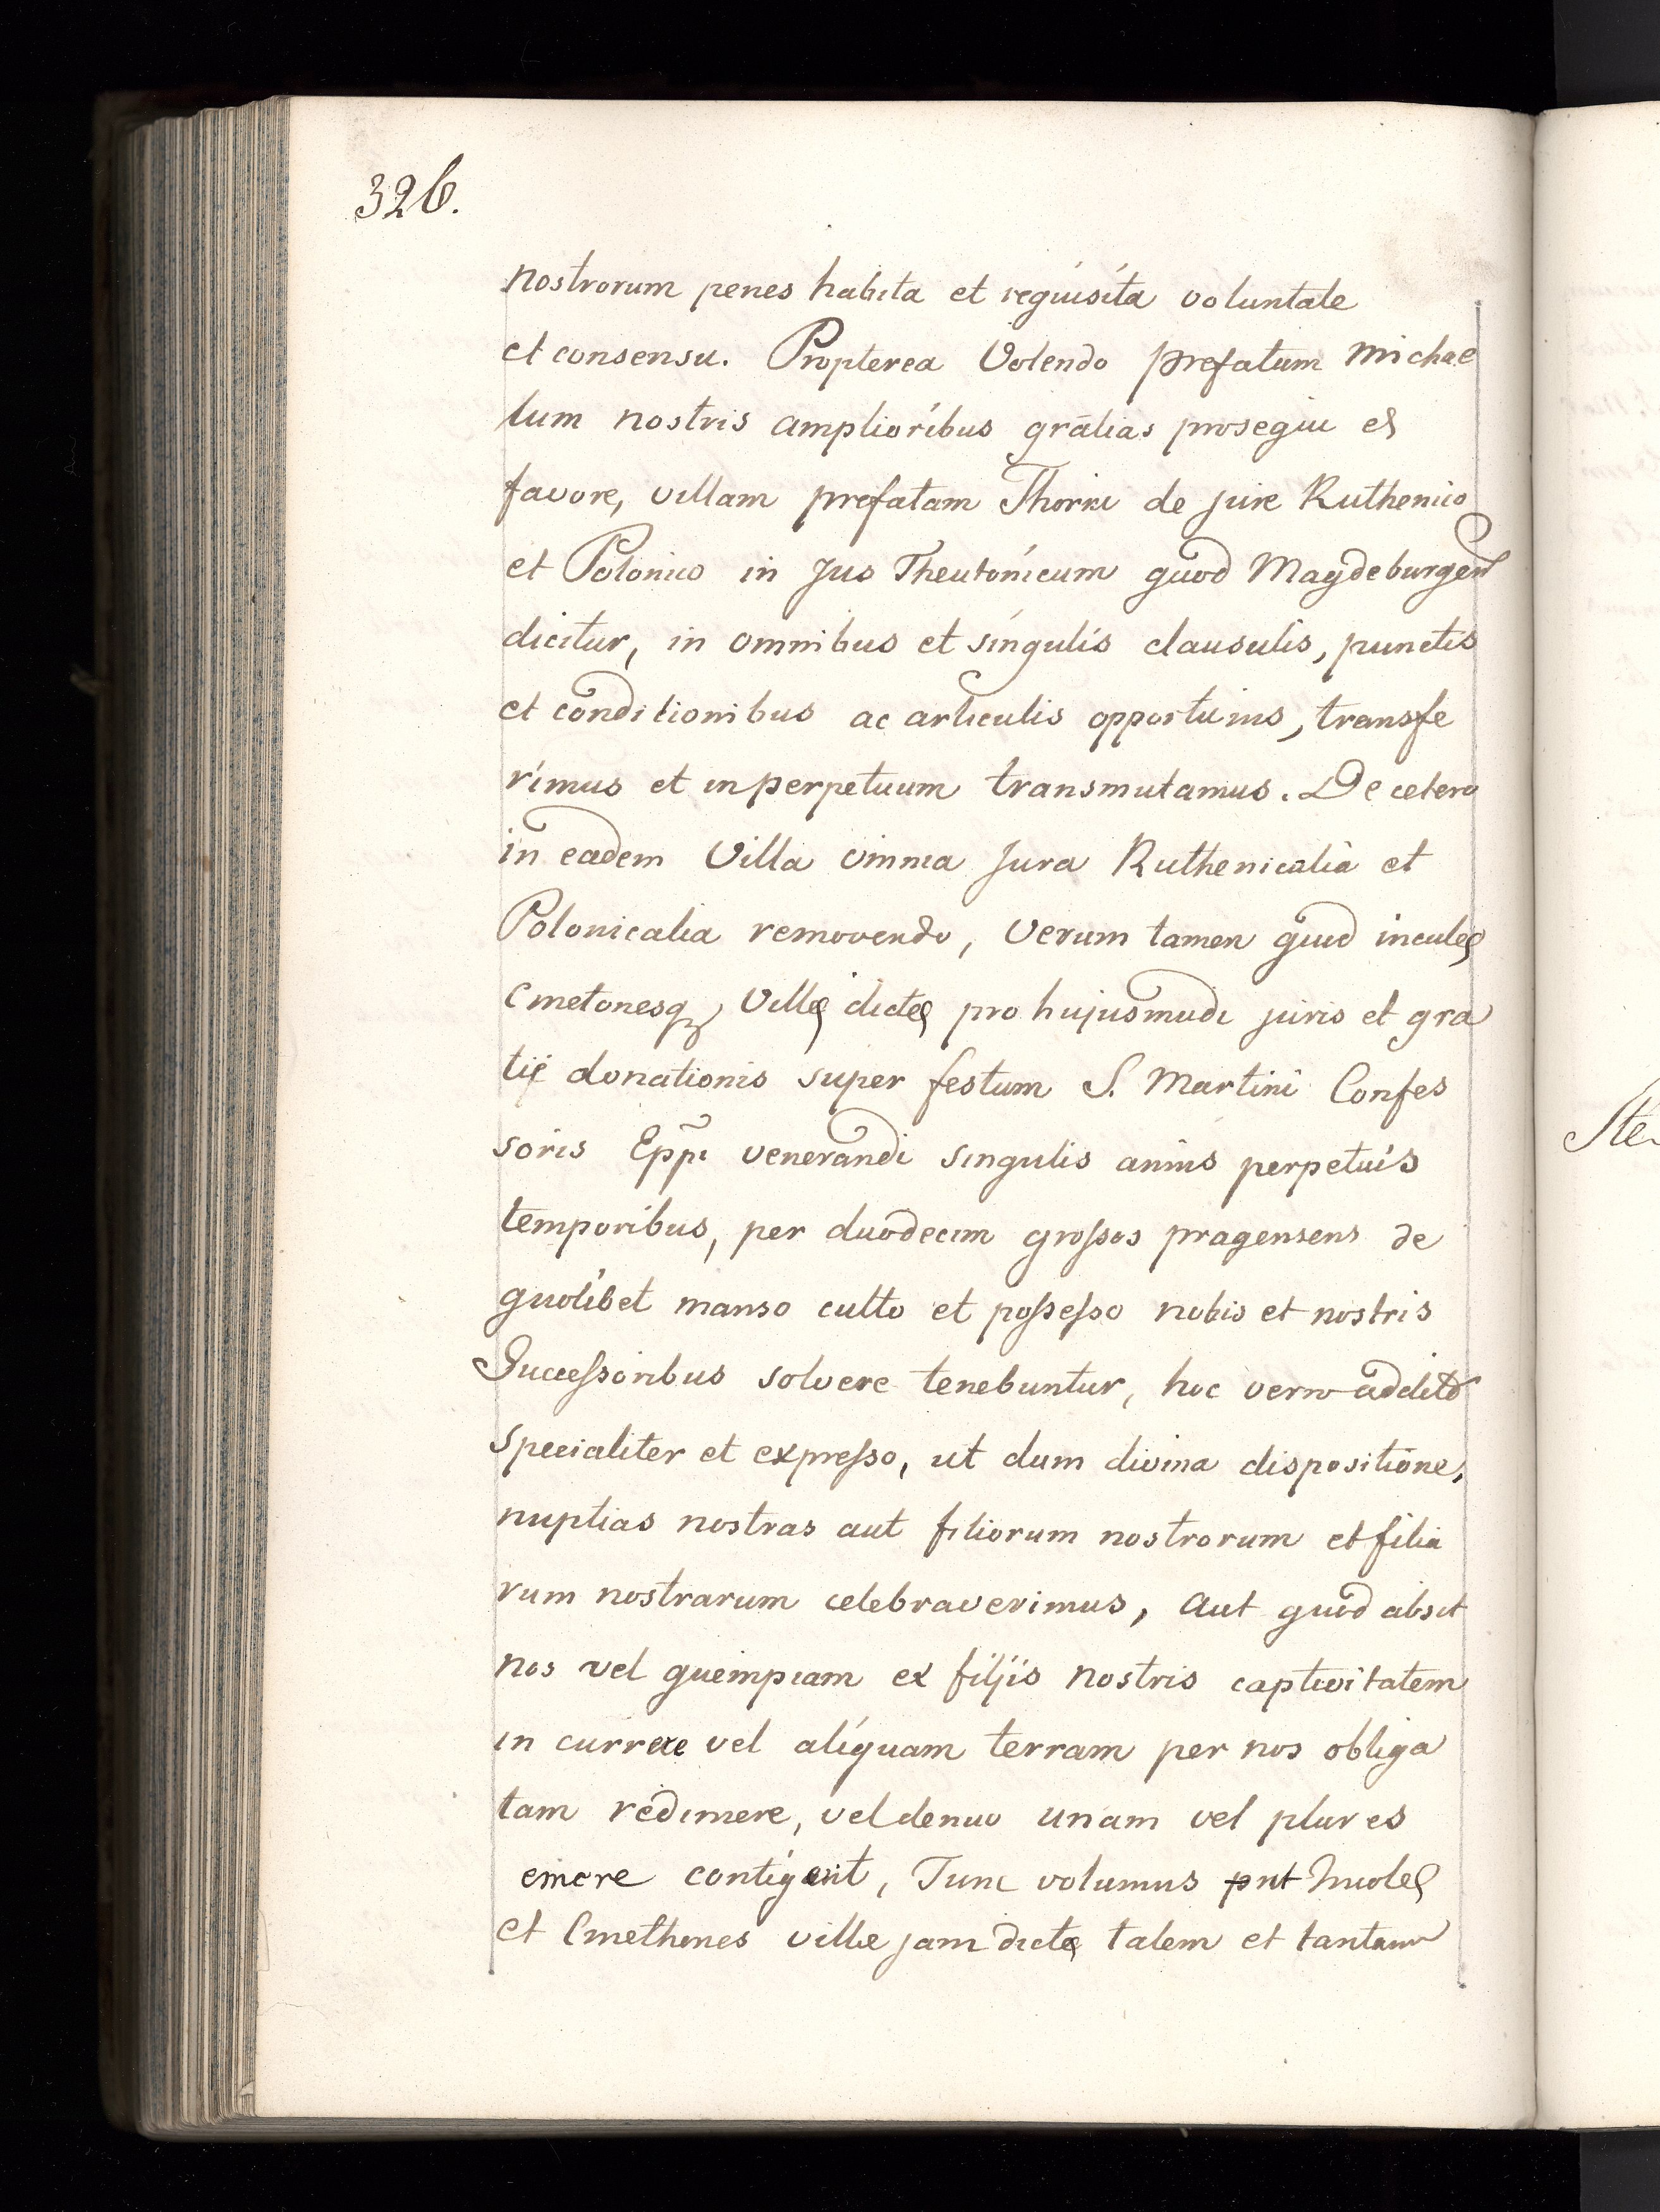 326.
nostrorum penes habita et reqúisíta voluntate
et consensu. Propterea Volendo prefatum Michae
lum nostris amplioríbus grālias prosequi eę
favore, villam prefatam Thorki de jure Ruthenico
et Polonico in Jus Theutónicum quod Magdeburgens
dicitur, in omnibus et síngulis clausulis, punctis
et conditionibus ac articulis opportunis, transfe
rímus et in perpetuum transmutamus. De cetero
in eadem Villa omnia Jura Ruthenicalia et
Polonicalia removendo, Verum tamen quod inculę
Cmetonesqꝫ Villę dictę pro hujusmodi juris et gra
tię donationis super festum S. Martini Confes
soris Epp̃i venerandi singulis annis perpetuis
temporíbus, per duodecim groſsos pragensens de
quolíbet manso culto et poſseſso nobis et nostris
Succeſsoribus solvere tenebuntur, hoc verro addito
specialiter et expreſso, ut dum divina dispositione,
nuptias nostras aut filiorum nostrorum et filia
rum nostrarum celebraverimus, aut quod absit
nos vel quempiam ex filijs nostris captivitatem
in currere vel alíquam terram per nos obliga
tam redimere, vel denuo unam vel plures
emere contigerit, Tunc volumus put Incolę
et Cmethones ville jam dictę talem et tantam
Ste